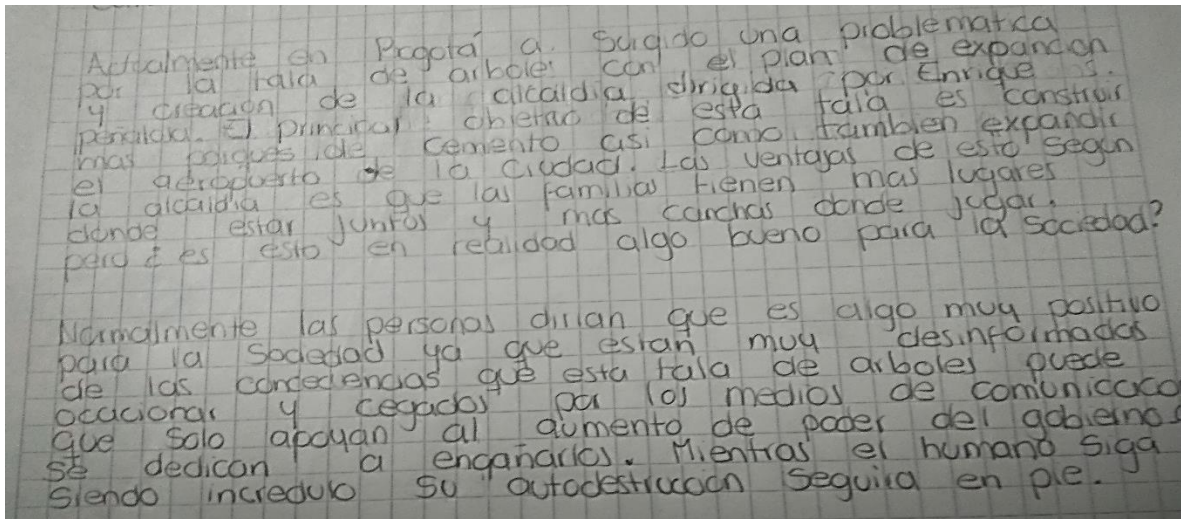 Actualmente en Bogotá a surgido una problematica
por la tala de arboles con el plan de expancion
y creacion de la alcaldia dirigida por Enrique
peñaloza. El principal objetivo de esta tala es construir
mas parques de cemento asi como tambien expandir
el aeropuerto de la ciudad. Las ventajas de esto segun
la alcaldia es que las familias tienen mas lugares
donde estar juntos y mas canchas donde jugar,
pero ¿es esto en realidad algo bueno para la sociedad?
Normalmente las personas dirian que es algo muy positivo
para la sociedad ya que estan muy desinformadas
de las consecencias que esta tala de arboles puede
ocacionar y cegados por los medios de comunicacio
que solo apoyan al aumento de poder del gobierno
se dedican a engañarlos. Mientras el humano siga
siendo incredulo su autodestruccion seguira en pie.